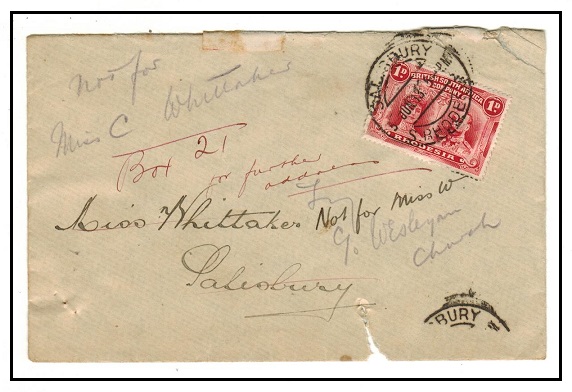 Not for
Miss C Whittaker
Box 21
for further
address
Miss Whittaker Not for Miss W.
Salisbury
Try
c/o Wesleyan
Church
1D 1D
BRITISH SOUTH AFRICA
COMPANY
RHODESIA
SALISBURY
S. RHODESIA
SBURY